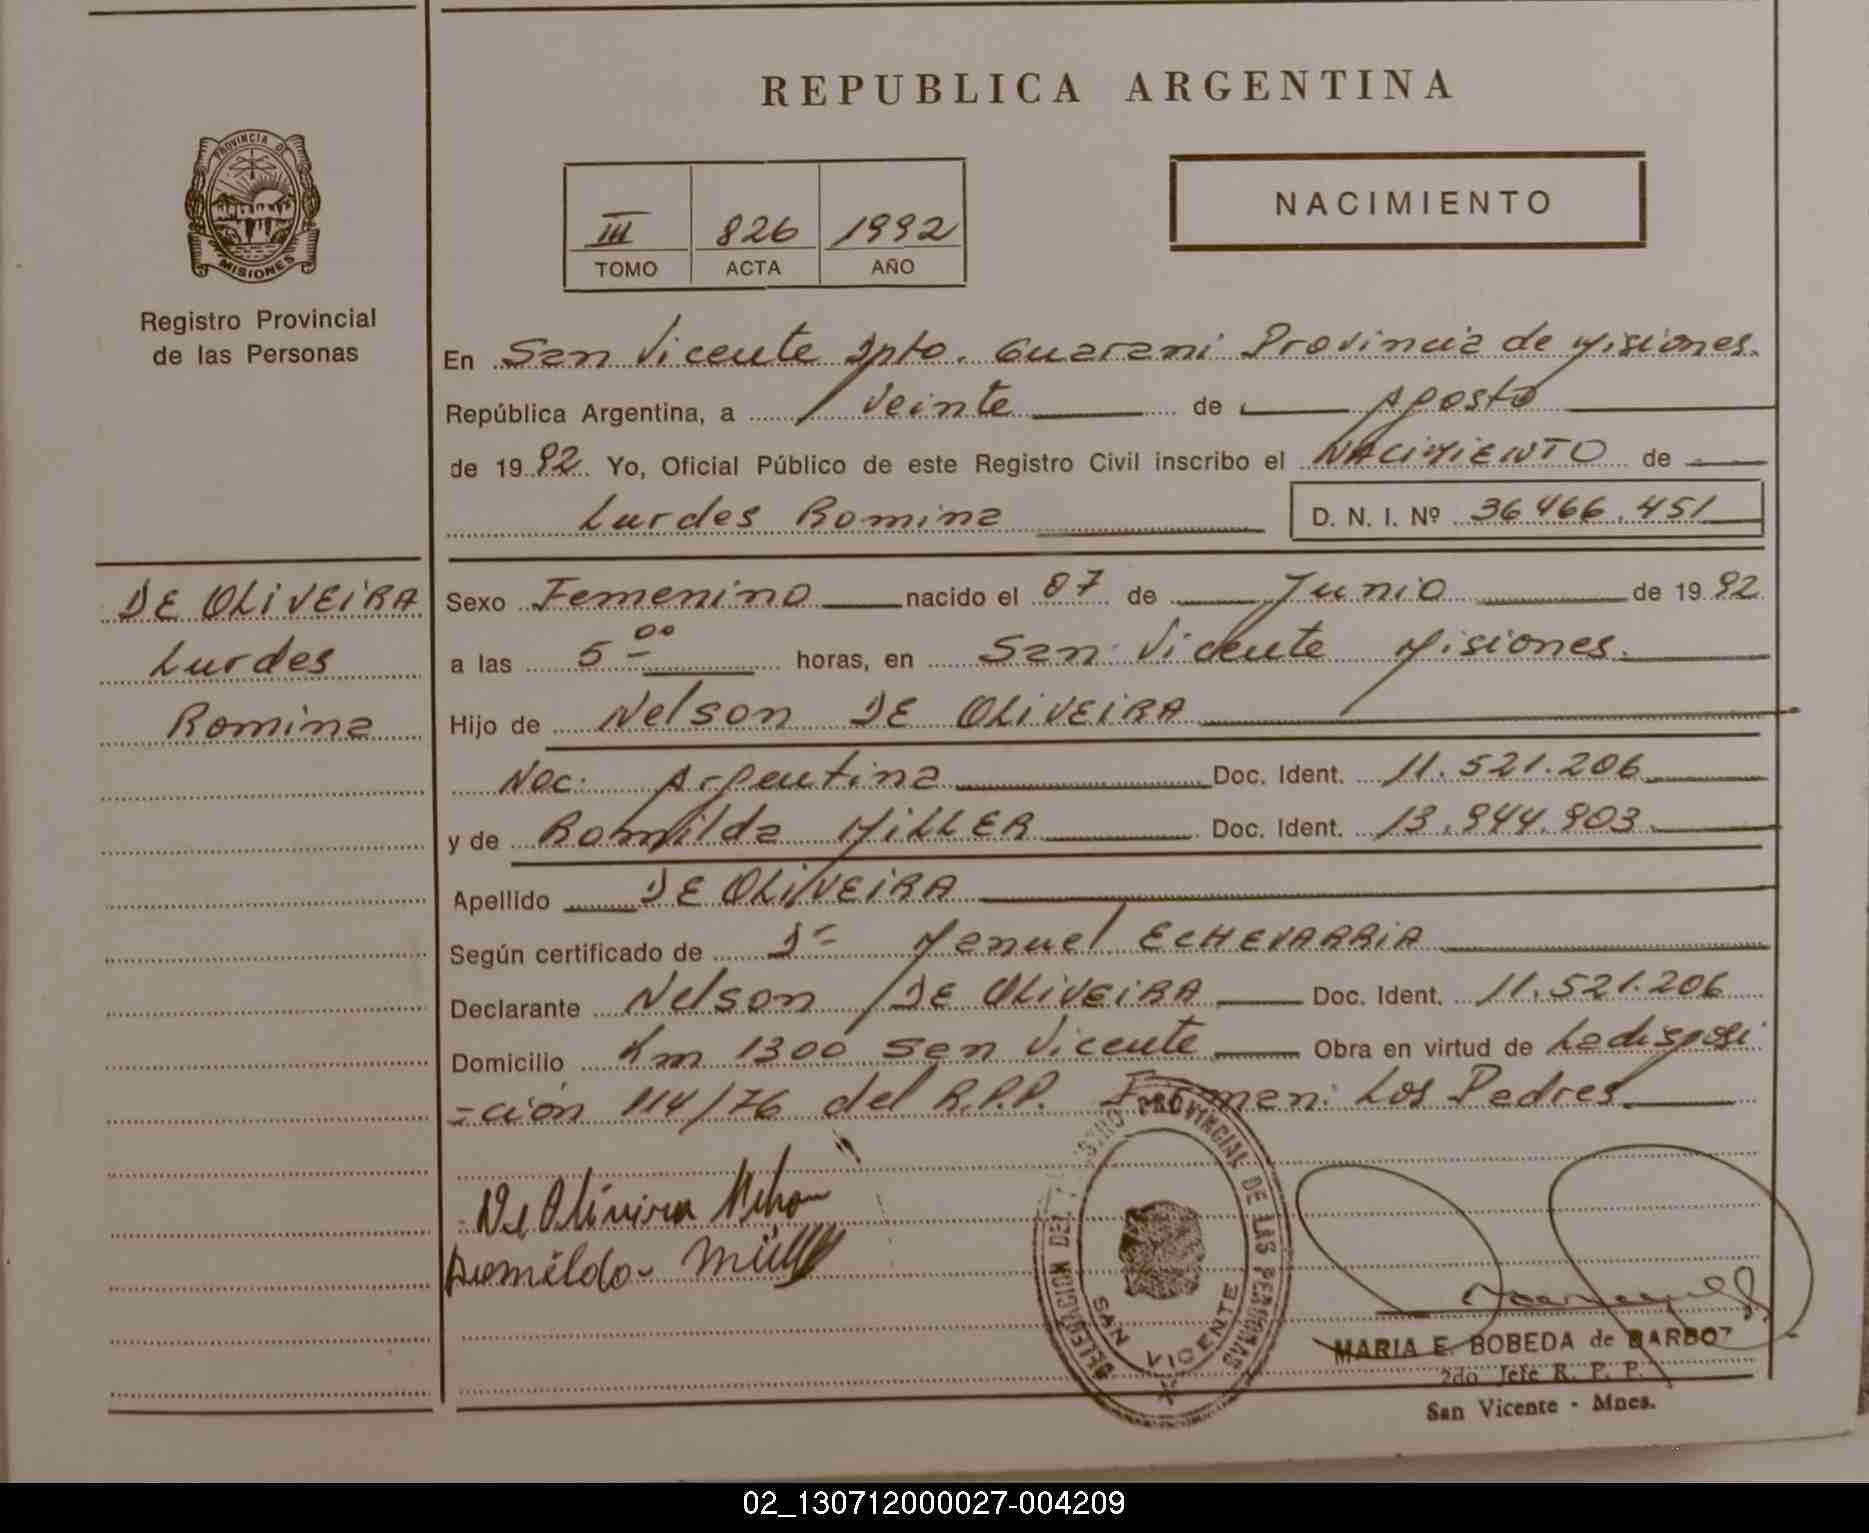 REPUBLICA ARGENTINA
PROVINCIA DE
MISIONES
Registro Provincial
de las Personas
III 826 1992
TOMO ACTA AÑO
NACIMIENTO
En San Vicente Dpto. Guarani Provincia de Misiones.
República Argentina, a veinte de Agosto
de 1992 Yo, Oficial Público de este Registro Civil inscribo el NACIMIENTO de
Lurdes Romina D. N. I. Nº 36466.451
DE OLIVEIRA
Lurdes
Romina
Sexo Femenino nacido el 07 de Junio de 1992
a las 5 00 horas, en San Vicente Misiones.
Hijo de Nelson DE OLIVEIRA
Nac. Argentina Doc. Ident. 11.521.206
y de Romilda MILLER Doc. Ident. 13.944.903
Apellido DE OLIVEIRA
Según certificado de Dr Manuel ECHEVARRIA
Declarante Nelson DE OLIVEIRA Doc. Ident. 11.521.206
Domicilio Km 1300 San Vicente Obra en virtud de La disposi
=ción 114/76 del R.P.P. Firman: Los Padres
De Oliveira
DELEGACION DEL REGISTRO PROVINCIAL DE LAS PERSONAS
SAN VICENTE
MARIA E. BOBEDA de BARBOZ
2do Jefe R. P. P.
San Vicente - Mnes.
02_130712000027-004209